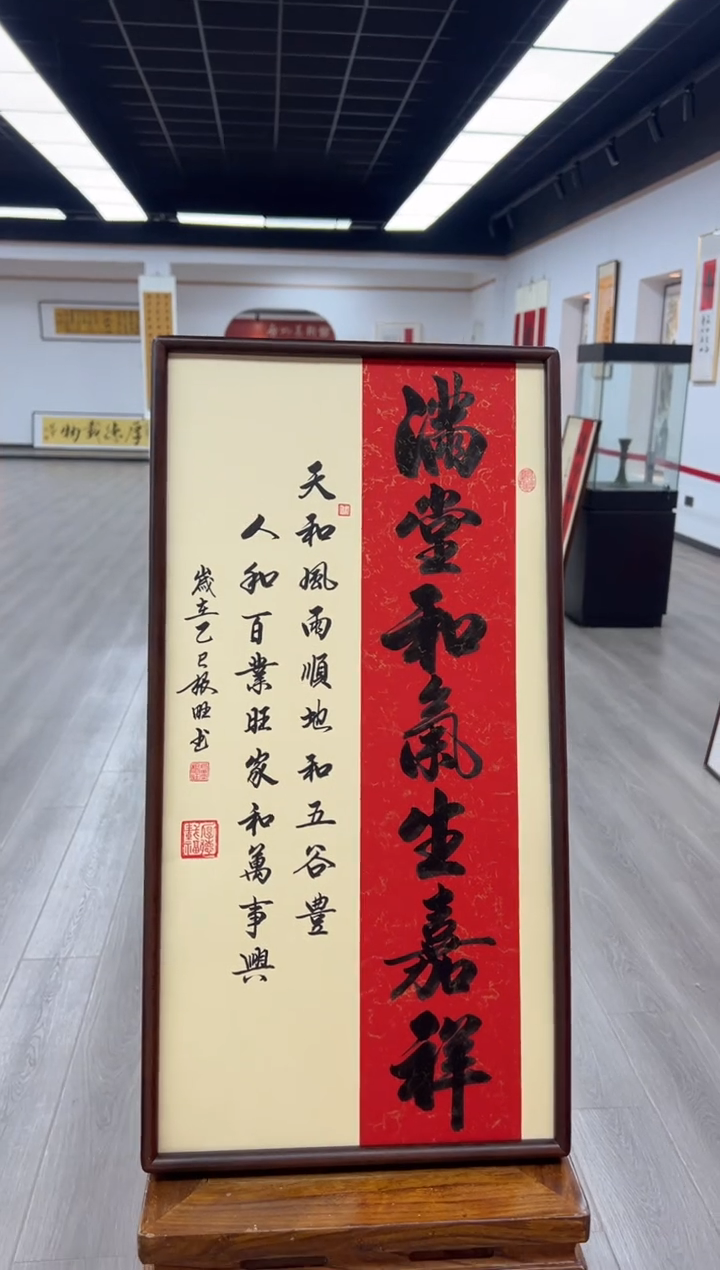 滿堂和氣生嘉祥
天和風雨順地和五谷豊
人和百業旺家和萬事興
歲在乙巳振旺书
厚德載物